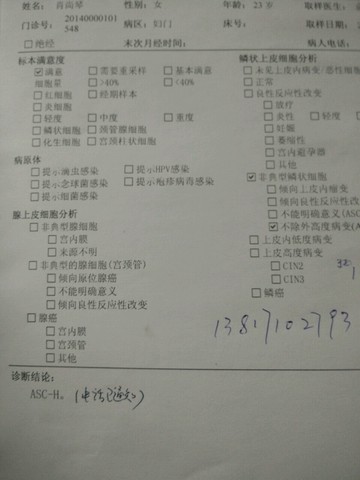 姓名： 肖尚琴 性别： 女 年龄： 23 岁 取样医生：
门诊号： 20140000101548 病区： 妇门 床号： 取样日期：
□绝经 末次月经时间： 病人电话：
标本满意度 鳞状上皮细胞分析
☑满意 □需要重采样 □基本满意 □未见上皮内病变/恶性细胞
细胞量 □>40% □<40% □正常
□红细胞 □经期样本 □良性反应性改变
□炎细胞 □放疗
□轻度 □中度 □重度 □炎性 □轻度
□鳞状细胞 □颈管腺细胞 □妊娠
□化生细胞 □宫颈柱状细胞 □萎缩性
□宫内避孕器
病原体 □其他
□提示滴虫感染 □提示HPV感染 ☑非典型鳞状细胞
□提示念球菌感染 □提示疱疹病毒感染 □倾向上皮内瘤变
□提示细菌感染 □倾向良性反应性改变
腺上皮细胞分析 □不能明确意义(ASC
□非典型腺细胞 ☑不除外高度病变(A
□宫内膜 □上皮内低度病变
□来源不明 □上皮高度病变
□非典型的腺细胞(宫颈管) □CIN2
□倾向原位腺癌 □CIN3
□不能明确意义 □鳞癌
□倾向良性反应性改变
□腺癌 13817102793
□宫内膜
□宫颈管
□其他
诊断结论：
ASC-H。 (电话已通知)